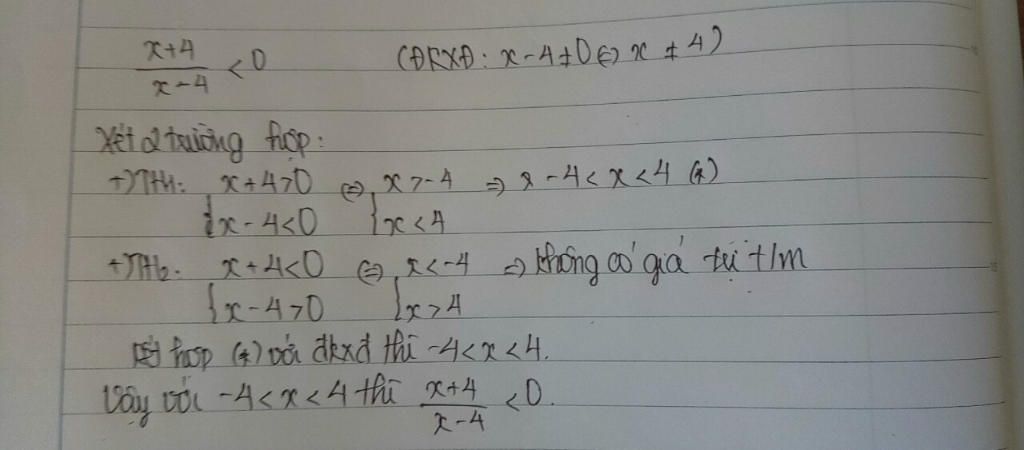 x+4/x-4 < 0 (ĐKXĐ: x-4≠0 ⇔ x ≠ 4)
Xét 2 trường hợp:
+) TH1: {x+4>0 ⇔ {x>-4 ⇒ -4<x<4 (*)
x-4<0 x<4
+) TH2: {x+4<0 ⇔ {x<-4 ⇒ không có giá trị t/m
x-4>0 x>4
Kết hợp (*) với đkxđ thì -4<x<4.
Vậy với -4<x<4 thì x+4/x-4 <0.